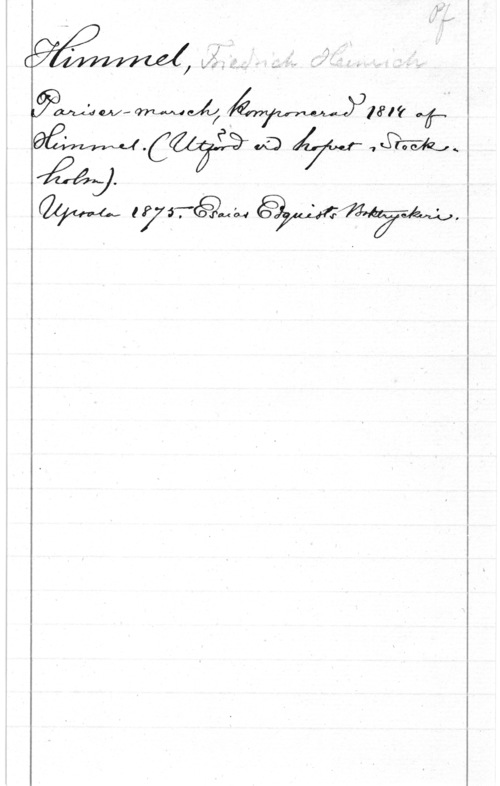 Pf
Himmel, Friedrich Heinrich
Pariser-marsch, komponerad 1814 af
Himmel. (Utförd vid hofvet i Stock-
holm).
Upsala 1875. Esaias Edquists Boktryckeri.